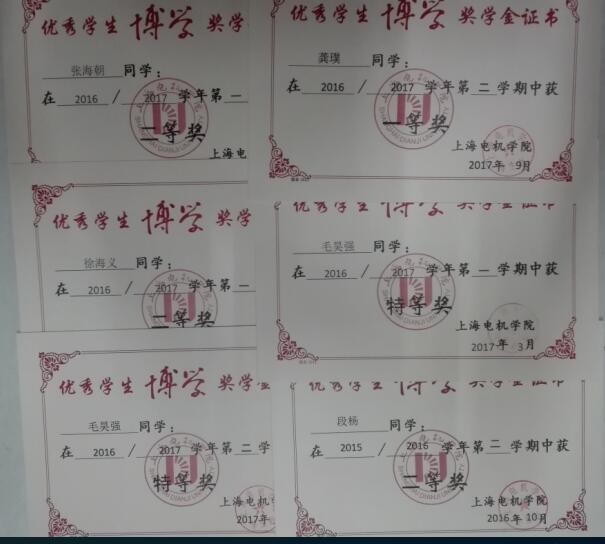 优秀学生博学奖学
张海朝 同学：
在 2016 / 2017 学年第一
二等奖
上海电
优秀学生博学奖学金证书
龚璞 同学：
在 2016 / 2017 学年第二学期中获
一等奖
上海电机学院
2017年 9月
优秀学生博学奖学
徐海义 同学：
在 2016 / 2017 学年第一
二等奖
优秀学生博学奖学金证书
毛昊强 同学：
在 2016 / 2017 学年第一学期中获
特等奖
上海电机学院
2017年 3月
优秀学生博学奖学金
毛昊强 同学：
在 2016 / 2017 学年第二学
特等奖
上海电机
2017年
优秀学生博学奖学金证书
段杨 同学：
在 2015 / 2016 学年第二学期中获
二等奖
上海电机学院
2016年10月